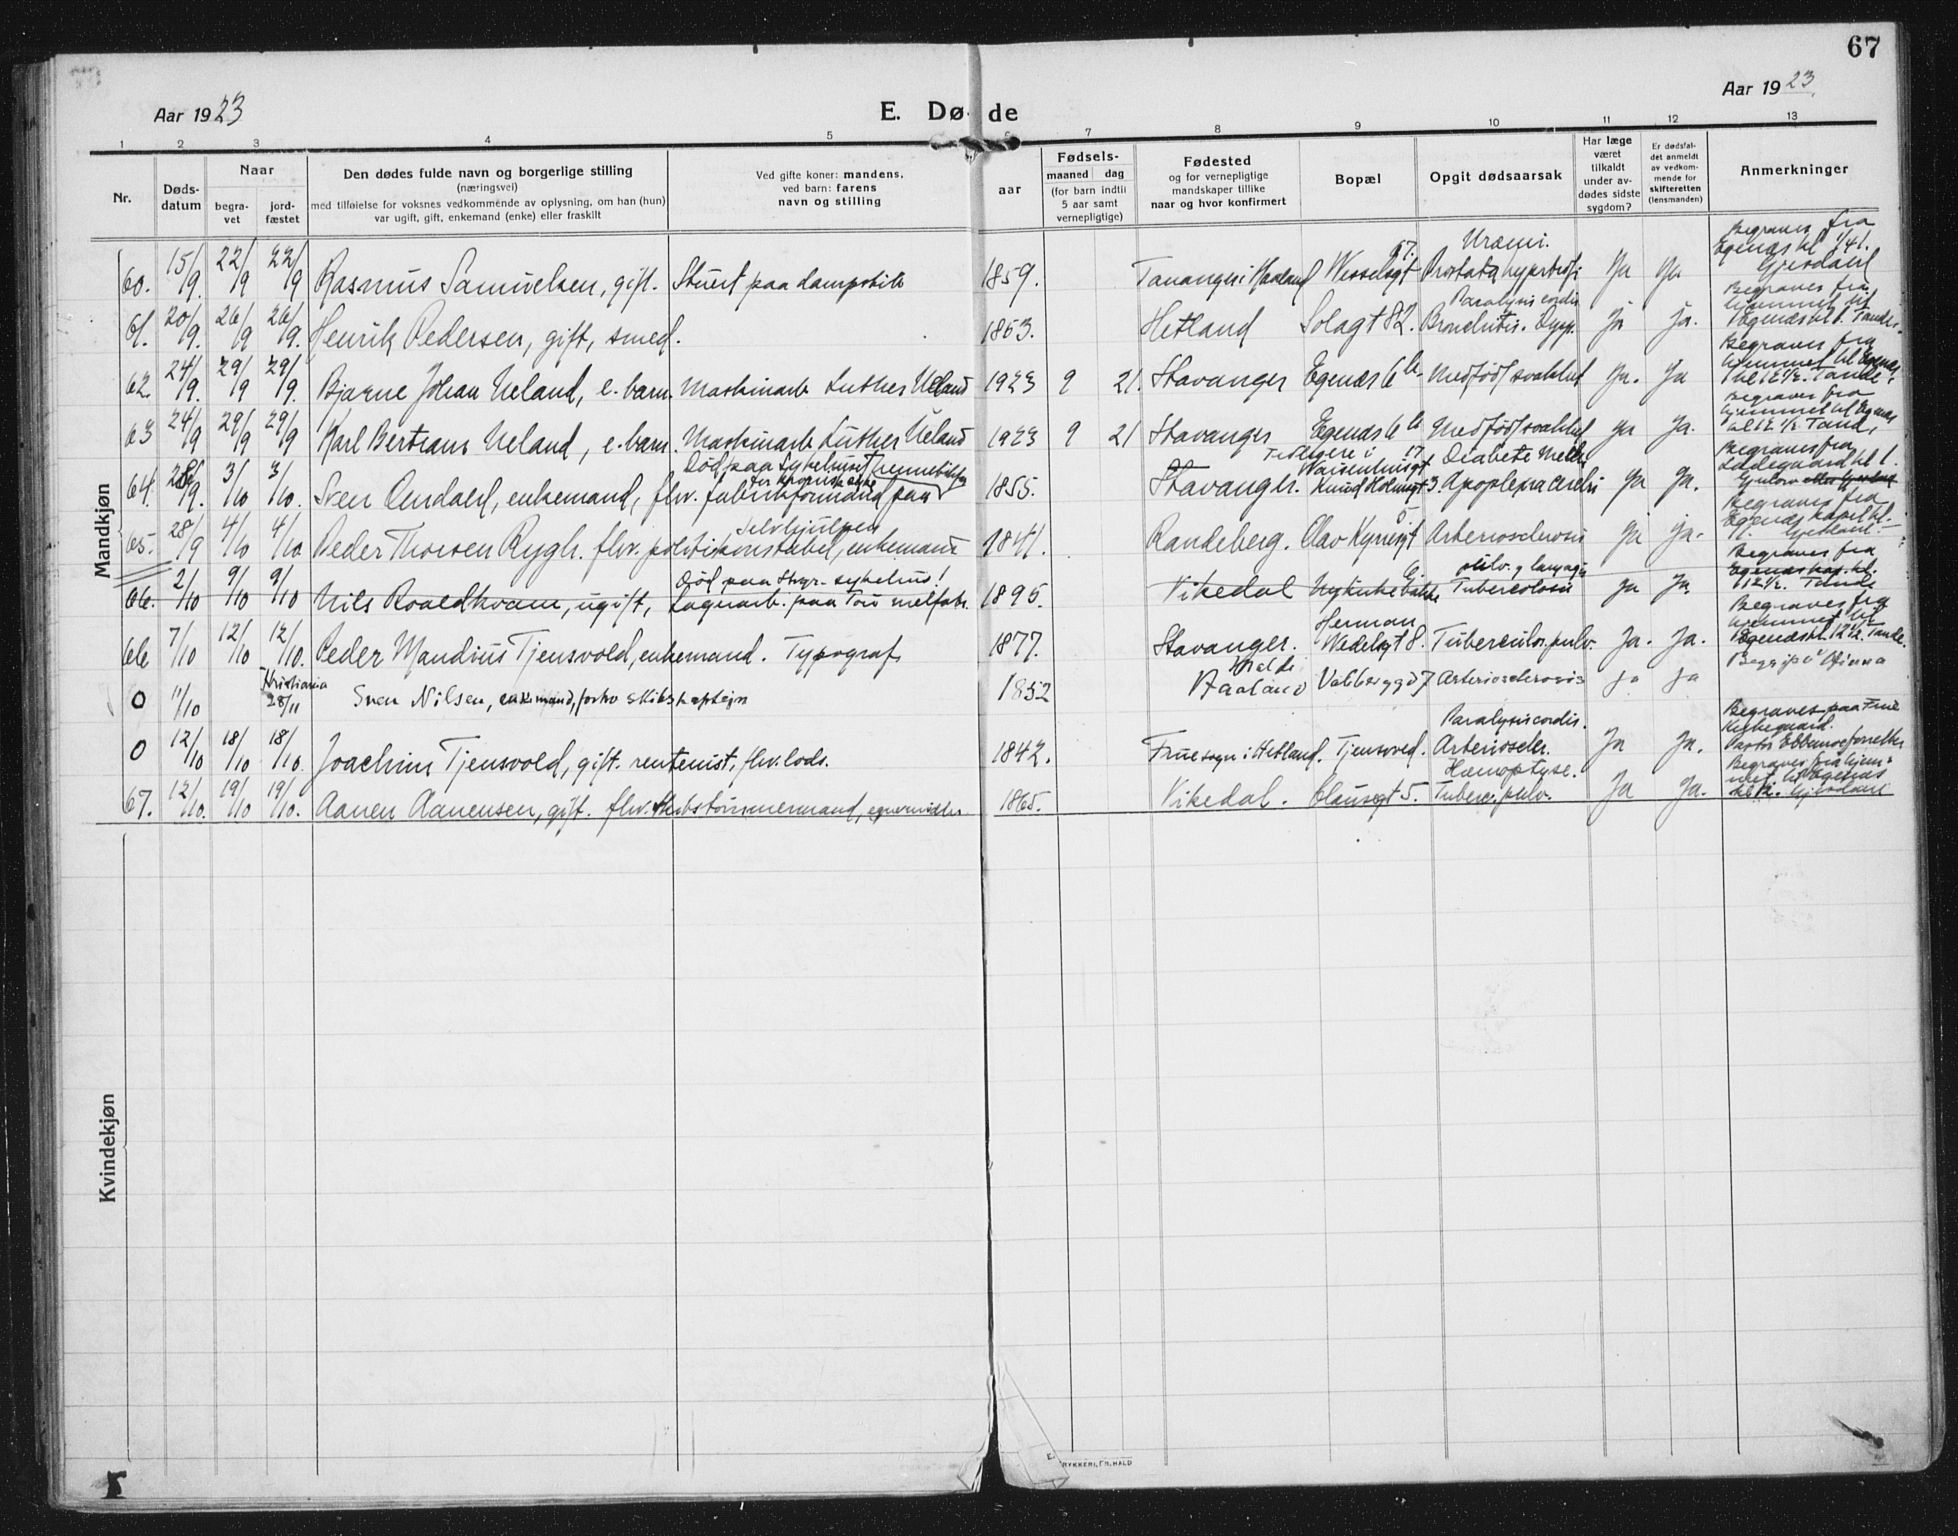 67
Aar 1923
E. Døde
Aar 1923.
1 2 3 4 5 7 8 9 10 11 12 13
Nr.
Døds-
datum
Naar
begra-
vet
jord-
fæstet
Den dødes fulde navn og borgerlige stilling
(næringsvei)
med tilføielse for voksnes vedkommende av oplysning, om han (hun)
var ugift, gift, enkemand (enke) eller fraskilt
Ved gifte koner: mandens,
ved barn: farens
navn og stilling
aar
Fødsels-
maaned dag
(for barn indtil
5 aar samt
vernepligtige)
Fødested
og for vernepligtige
mandskaper tillike
naar og hvor konfirmert
Bopæl
Opgit dødsaarsak
Har læge
været
tilkaldt
under av-
dødes sidste
sygdom?
Er dødsfal-
det anmeldt
av vedkom-
mende for
skifteretten
(lensmanden)
Anmerkninger
Mandkjøn
Begraves fra
Uræmi. Egenæs kl. 1
60. 15/9. 22/9 22/9 Rasmus Samuelsen, gift. Stuert paa dampskib 1859. Tananger i Haaland Wesselsgt 57. Prostata hypertrofi Ja Ja
Paralysis cordis Begraves fra
61. 20/9. 26/9 26/9. Henrik Pedersen, gift, smed. 1853. Hetland Solagt 82. Bronchitis. Ja Ja. hjemmet til
Begraves fra
62. 24/9. 29/9 29/9. Bjarne Johan Ueland, e. barn. Maskinarb. Luther Ueland 1923 9 21. Stavanger Egenæs 6 b. Medfödt svakhet Ja. Ja hjemmet til Egenæs kl 12 1/2. Tande
Begraves fra
63 24/9 29/9 29/9 Karl Bertram Ueland, e. barn. Maskinarb. Luther Ueland 1923 9 21 Stavanger Egenæs 6 b Medfödt svakhet Ja Ja. hjemmet til Egenæs kl 12 1/2 Tande
Död paa Sykehuset
for kronisk syke
Tidligere i Waisenhusgt 17 Diabetes mell. Begraves fra
64. 28/9. 3/10 3/10. Sven Omdal, enkemand, fhv. fabrikformand paa 1855. Stavanger. Knud Holmsgt 3. Apoplexia cerebri Ja Ja. Ladegaard kl 1.
Selvhjulpen Begraves fra
65. 28/9 4/10 4/10 Peder Thorsen Rygh. fhv. politikonstabel, enkemand 1841. Randeberg. Olav Kyrresgt 5 Arteriosclerosis Ja Ja. Egenæs kapel kl.
Död paa Stvgr. sykehus! pulv. g laryngis Begraves fra
66. 2/10 9/10 9/10 Nils Roaldkvam, ugift, Lagerarb. paa Tou 1895. Vikedal Nykirkebakke 6. Tuberculosis Ja Ja. Egenæs kap. kl. 12 1/2. Tande
Herman Begraves fra
66 7/10 12/10 12/10. Peder Mandius Tjensvold, enkemand. Typograf 1877. Stavanger. Wedelsgt 8. Tuberculos. pulv. Ja. Ja. hjemmet til Egenæs kl. 12 1/2. Tande
Kristiania
0 11/10 28/11 Sven Nilsen, enkemand, forhv skibskaptein 1852 Haaland Valberggd 7 Arteriosclerosis Ja Ja
Paralysis cordis. Begraves paa Frue
Kirkegaard.
0 12/10 18/10 18/10. Joachim Tjensvold, gift. rentenist, fhv. lods. 1842. Fruesogn i Hetland. Tjensvold. Arterioscler. Ja Ja.
Hæmoptyse. Begraves fra hjem-
met til Egenæs
67. 12/10. 19/10 19/10. Aanen Aanensen, gift. fhv. skibstømmermand, 1865. Vikedal. Clausegt 5. Tuberc. pulv. Ja Ja.
Kvindekjøn
RYKKERI, FR. HALD